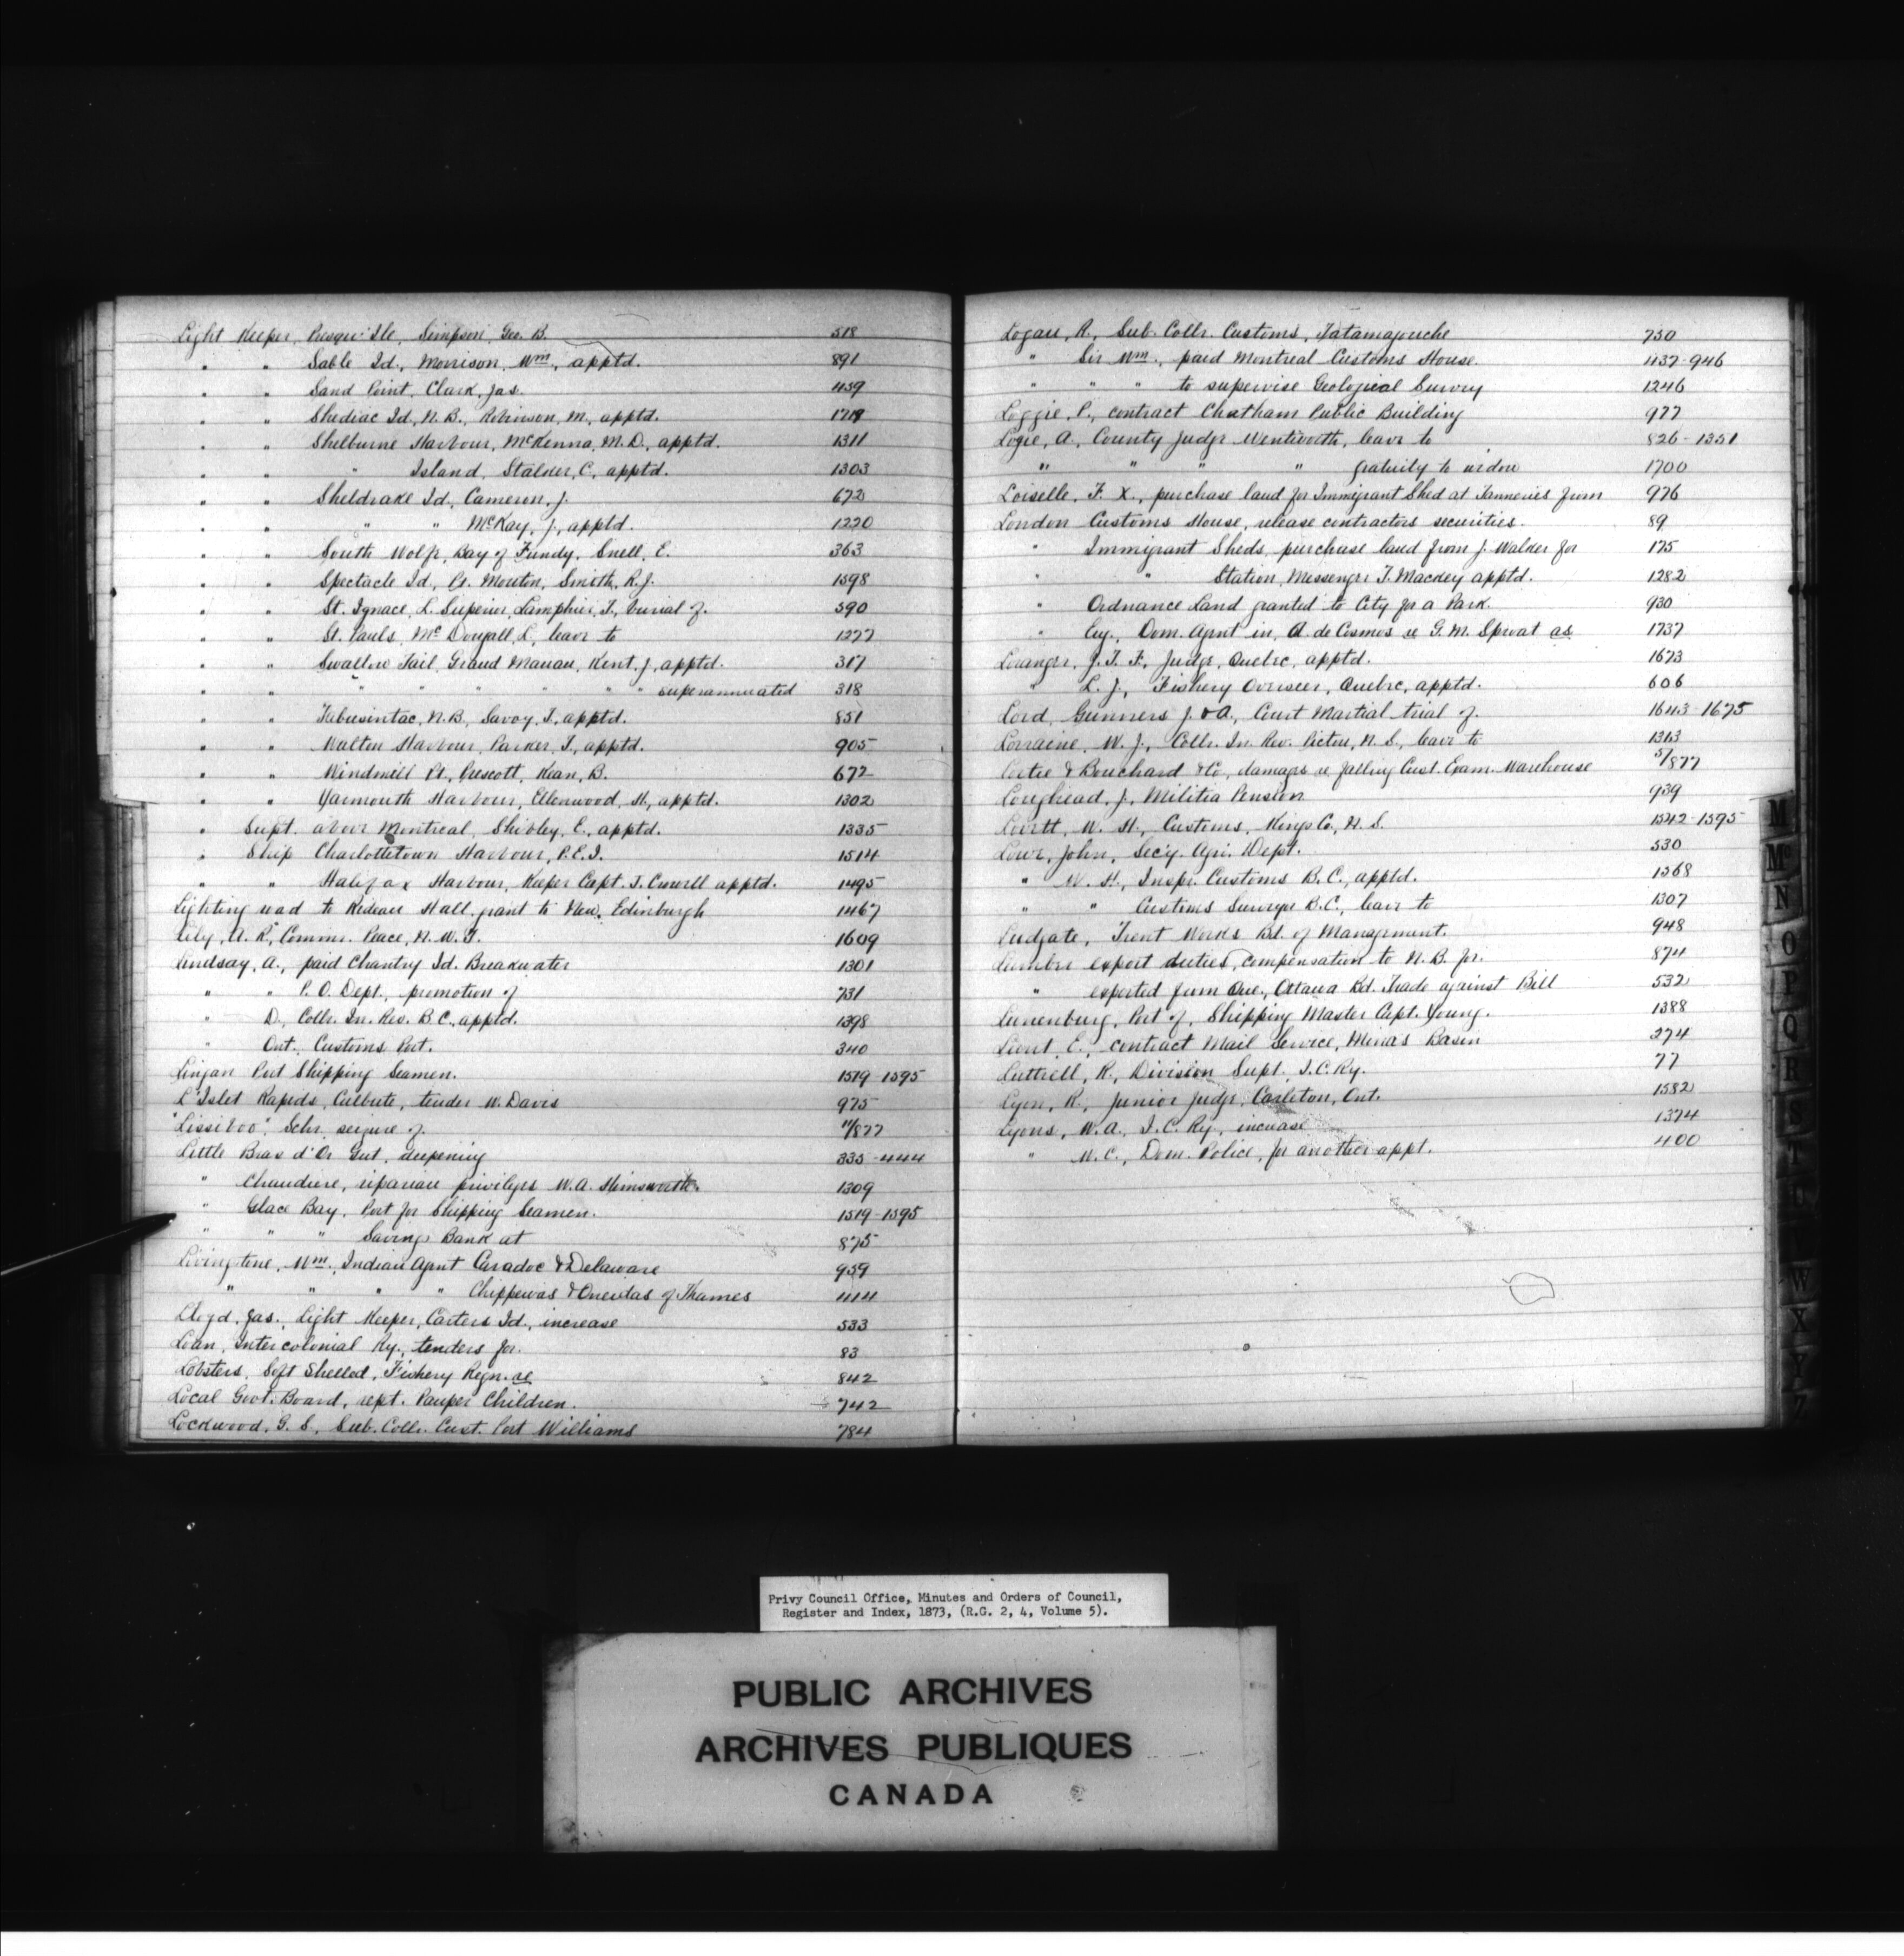 Light Keeper, Presqu'Ile, Simpson Geo. B. 518
" " Sable Id., Morrison, Wm., apptd. 891
" " Sand Point, Clark, Jas. 1139
" " Shediac Id., N.B., Robinson, M., apptd. 1718
" " Shelburne Harbour, McKenna, M.D., apptd. 1311
" Island, Stalker, C., apptd. 1303
" " Sheldrake Id., Cameron, J. 672
" " " " McKay, J., apptd. 1220
" " South Wolf, Bay of Fundy, Snell, E. 363
" " Spectacle Id., Pt. Mouton, Smith, R.J. 1598
" " St. Ignace, L. Superior, Lamphier, T., burial of. 590
" " St. Pauls, McDougall, L., leave to 1277
" " Swallow Tail, Grand Manan, Kent, J., apptd. 317
" " " " " " " " superannuated 318
" " Tabusintac, N.B., Savoy, T., apptd. 851
" " Walton Harbour, Parker, T., apptd. 905
" " Windmill Pt., Prescott, Kean, B. 672
" " Yarmouth Harbour, Ellenwood, H., apptd. 1302
" Supt. above Montreal, Shibley, E., apptd. 1335
" Ship Charlottetown Harbour, P.E.I. 1514
" " Halifax Harbour, Keeper Capt. T. apptd. 1495
Lighting road to Rideau Hall, grant to New Edinburgh 1467
Lily, A. R., Commr. Peace, N.W.T. 1609
Lindsay, A., paid Chantry Id. Breakwater 1301
" " P.O. Dept., promotion of 731
" D., Collr. In. Rev. B.C., apptd. 1398
" Ont., Customs Port. 340
Lingan Port Shipping Seamen. 1519-1595
L'Islet Rapids, Culbute, tender W. Davis 975
"Lissiboo", Schr. seizure of. 11/877
Little Bras d'Or Gut, deepening 335-444
" Chaudiere, riparian privileges W.A. Himsworth. 1309
" Glace Bay, Port for Shipping Seamen. 1519-1595
" " " Savings Bank at 875
Livingstone, Wm., Indian Agent Caradoc & Delaware 959
" " " " Chippewas & Oneidas of Thames 444
Lloyd, Jas., Light Keeper, Carters Id., increase 533
Loan, Intercolonial Ry., tenders for. 83
Lobsters, Soft Shelled, Fishery Regn. re 842
Local Govt. Board, rept. Pauper Children. 742
Lockwood, G. S., Sub. Collr. Cust. Port Williams 784
Logan, R., Sub. Collr. Customs, Tatamagouche 750
" Sir Wm., paid Montreal Customs House. 1137-946
" " " to supervise Geological Survey 1246
Loggie, P., contract Chatham Public Building 977
Logie, A., County Judge Wentworth, leave to 826-1351
" " " " gratuity to widow 1700
Loiselle, F. X., purchase land for Immigrant Shed at Tanneries from 976
London Customs House, release contractors securities. 89
" Immigrant Sheds, purchase land from J. Walker for 175
" " Station, Messenger T. Mackey apptd. 1282
" Ordnance Land granted to City for a Park. 930
" Eng., Dom. Agent in, A. de Cosmos re G.M. Sproat as 1737
Loranger, J.T.F., Judge, Quebec, apptd. 1673
" L. J., Fishery Overseer, Quebec, apptd. 606
Lord, Gunners J. & A., Court Martial trial of. 1643-1675
Lorraine, W. J., Collr. In. Rev. Pictou, N.S., leave to 1313
Lortie & Bouchard & Co, damages re falling Cust. Exam. Warehouse 5/877
Loughead, J., Militia Pension 939
Lovitt, W. H., Customs, Kings Co., N.S. 1542-1595
Lowe, John, Secy. Agri. Dept. 530
" W. H., Inspr. Customs B.C., apptd. 1568
" " Customs Surveyor B.C., leave to 1307
Ludgate, Trent Works Bd. of Management. 948
Lumber export duties, compensation to N.B. for. 874
" exported from Que., Ottawa Bd. Trade against Bill 532
Lunenburg, Port of, Shipping Master Capt. Young. 1388
E., contract Mail Service, Minas Basin 274
Luttrell, R., Division Supt. I.C.Ry. 77
Lyon, R., Junior Judge, Carleton, Ont. 1582
Lyons, W.A., I.C. Ry., increase 1374
" W.C., Dom. Police, for another appt. 400
M
Mc
N
O
P
Q
R
S
T
U
W
X
Y
Z
Privy Council Office, Minutes and Orders of Council,
Register and Index, 1873, (R.G. 2, 4, Volume 5).
PUBLIC ARCHIVES
ARCHIVES PUBLIQUES
CANADA